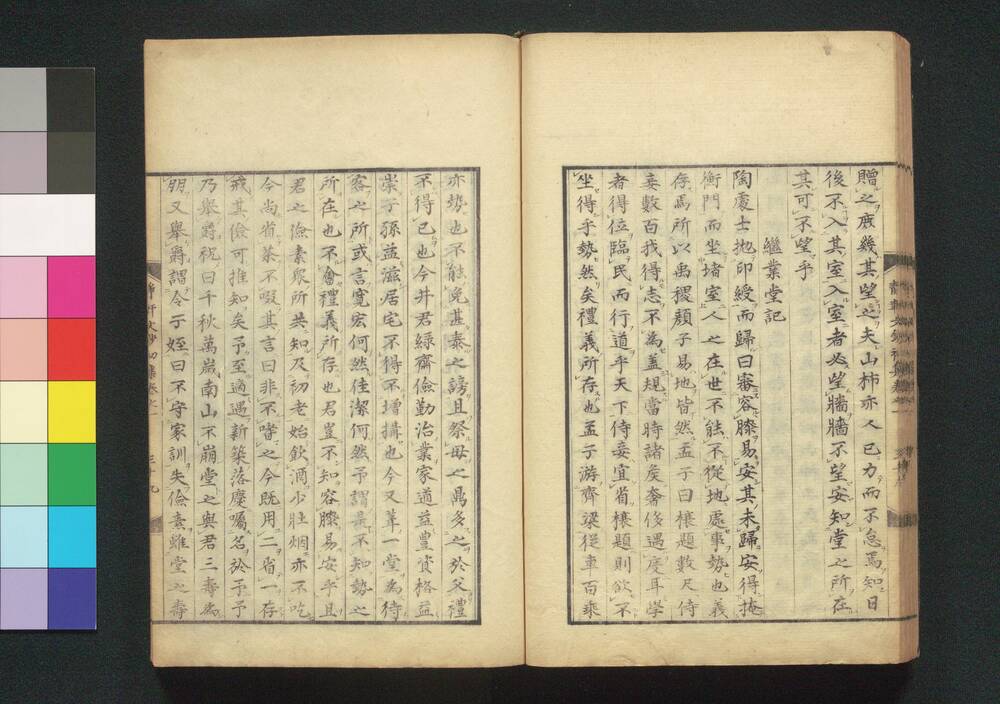 贈之庶幾其望之夫山柿亦人已力而不怠焉知日
後不入其室入室者必望牆牆不望安知堂之所在
其可不望乎
繼業堂記
陶處士地印綬而歸曰審容膝易安其未歸安得掩
衡門而坐堵室人之在世不能不從地處事勢也義
存焉所以禹稷顏子易地皆然孟子曰榱題數尺侍
妾數百我得志不為蓋規當時諸侯奢侈過度耳學
者得位臨民而行道乎天下侍妾宜省榱題則欲不
坐得乎勢然矣禮義所存也孟子游齊梁從車百乘
亦勢也不能免甚泰之謗且祭母之鼎多之於父禮
不得已也今井君綠齋儉勤治業家道益豐資格益
崇子孫益滋居宅不得不增搆也今又葺一堂為待
客之所或言寬宏何然佳潔何然予謂是不知勢之
所在也不會禮義所存也君豈不知容膝易安乎且
君之儉素眾所共知及初老始飲酒少壯烟亦不吃
今尚省茶不啜其言曰非不嗜之今既用二省一存
戒其儉可推知矣予至適遇新築落慶囑名於予予
乃舉爵祝曰千秋萬歲南山不崩堂之與君三壽為
朋又舉爵謂令子姪曰不守家訓失儉素雖堂之壽